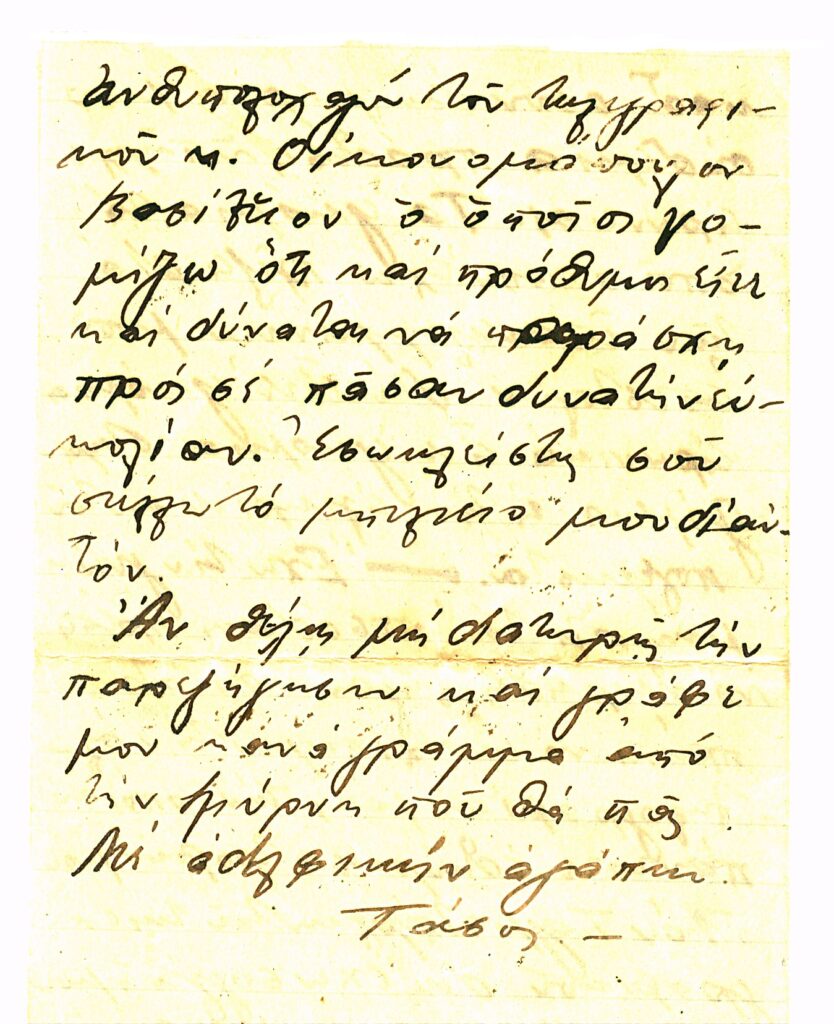 Ἀνθυπολοχαγόν τοῦ τηλεγραφι-
κοῦ κ. Οἰκονομόπουλον
Βασίλειον ὁ ὁποῖος νο-
μίζω ὅτι καί πρόθυμος εἶνε
καί δύναται νά παράσχῃ
πρός σέ πᾶσαν δυνατήν εὐ-
κολίαν. Ἐσωκλείστως σοῦ
στέλλω τό μπιλιέτο μου δι' αὐ-
τόν.
Ἄν θέλῃς μή διατηρῇς τήν
παρεξήγησιν καί γράφε
μου κανά γράμμα ἀπό
τήν Σμύρνη ποῦ θά πᾷς.
Μέ ἀδελφικήν ἀγάπην
Τάσος –